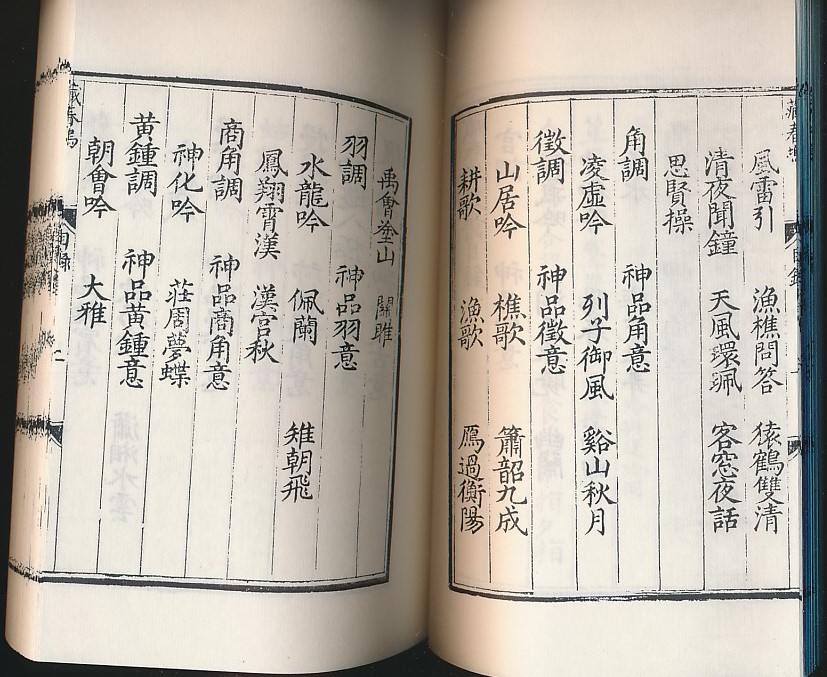 風雷引 漁樵問答 猿鶴雙清
清夜聞鐘 天風環珮 客窓夜話
思賢操
角調 神品角意
凌虛吟 列子御風 谿山秋月
徵調 神品徵意
山居吟 樵歌 簫韶九成
耕歌 漁歌 鴈過衡陽
禹會塗山 關雎
羽調 神品羽意
水龍吟 佩蘭 雉朝飛
鳳翔霄漢 漢宮秋
商角調 神品商角意
神化吟 莊周夢蝶
黃鍾調 神品黃鍾意
朝會吟 大雅
藏春塢 目録 二